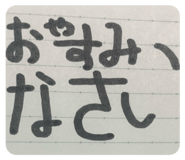 おやすみ、
なさい